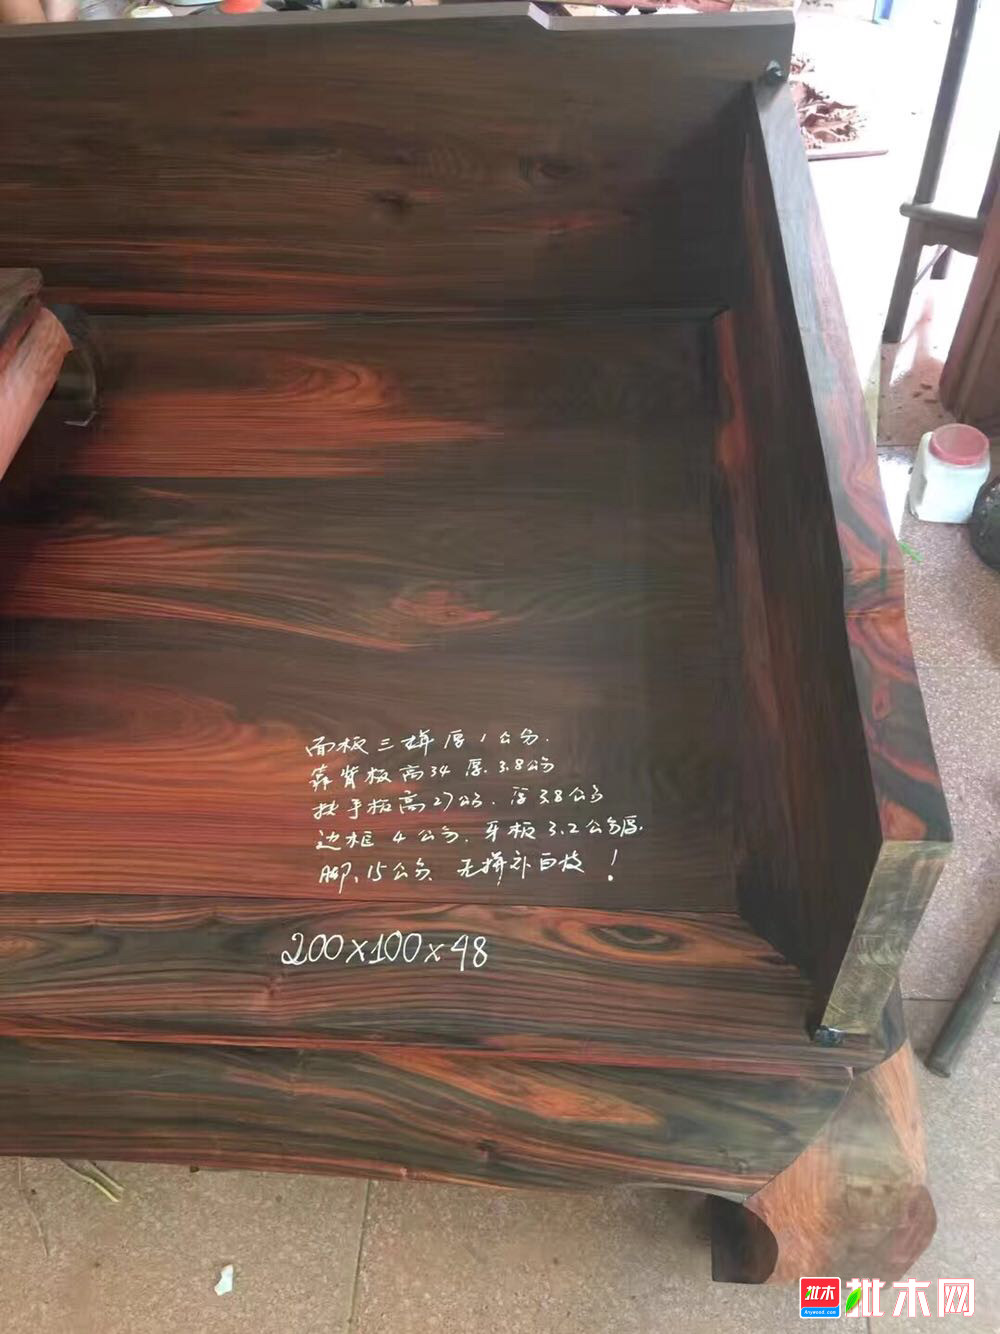 面板三拼厚1公分.
靠背板高34厚.3.8公分
扶手板高27公分.厚3.8公分
边框4公分.牙板3.2公分厚.
脚、15公分、无拼补白皮!
200x100x48
批木
Anywood.com
批木网